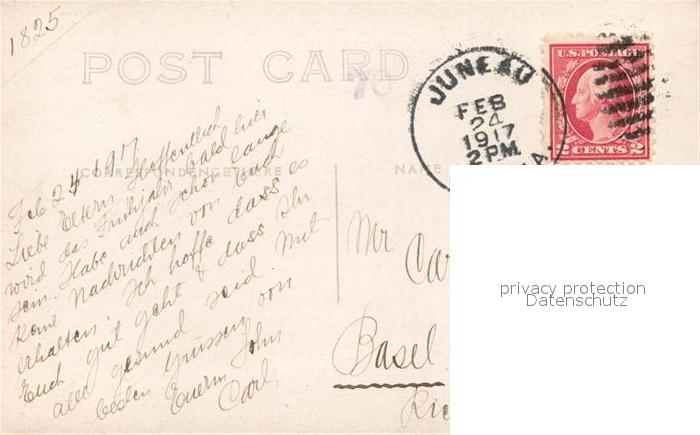 1825
POST CARD
70
JUNEAU
FEB
24
1917
2 PM
A.
U.S. POSTAGE
2 CENTS 2
CORRESPONDENCE HERE
NAME
Feb 24 1917
Liebe Eltern Hoffentlich
wird das Frühjahr bald hier
sein. Habe auch schon lange
keine Nachrichten von Euch
erhalten. Ich hoffe dass es
Euch gut geht & dass Ihr
alle gesund seid. Mit
besten Grüssen von
Euerm Sohn
Carl
Mr Car
Basel
privacy protection
Datenschutz